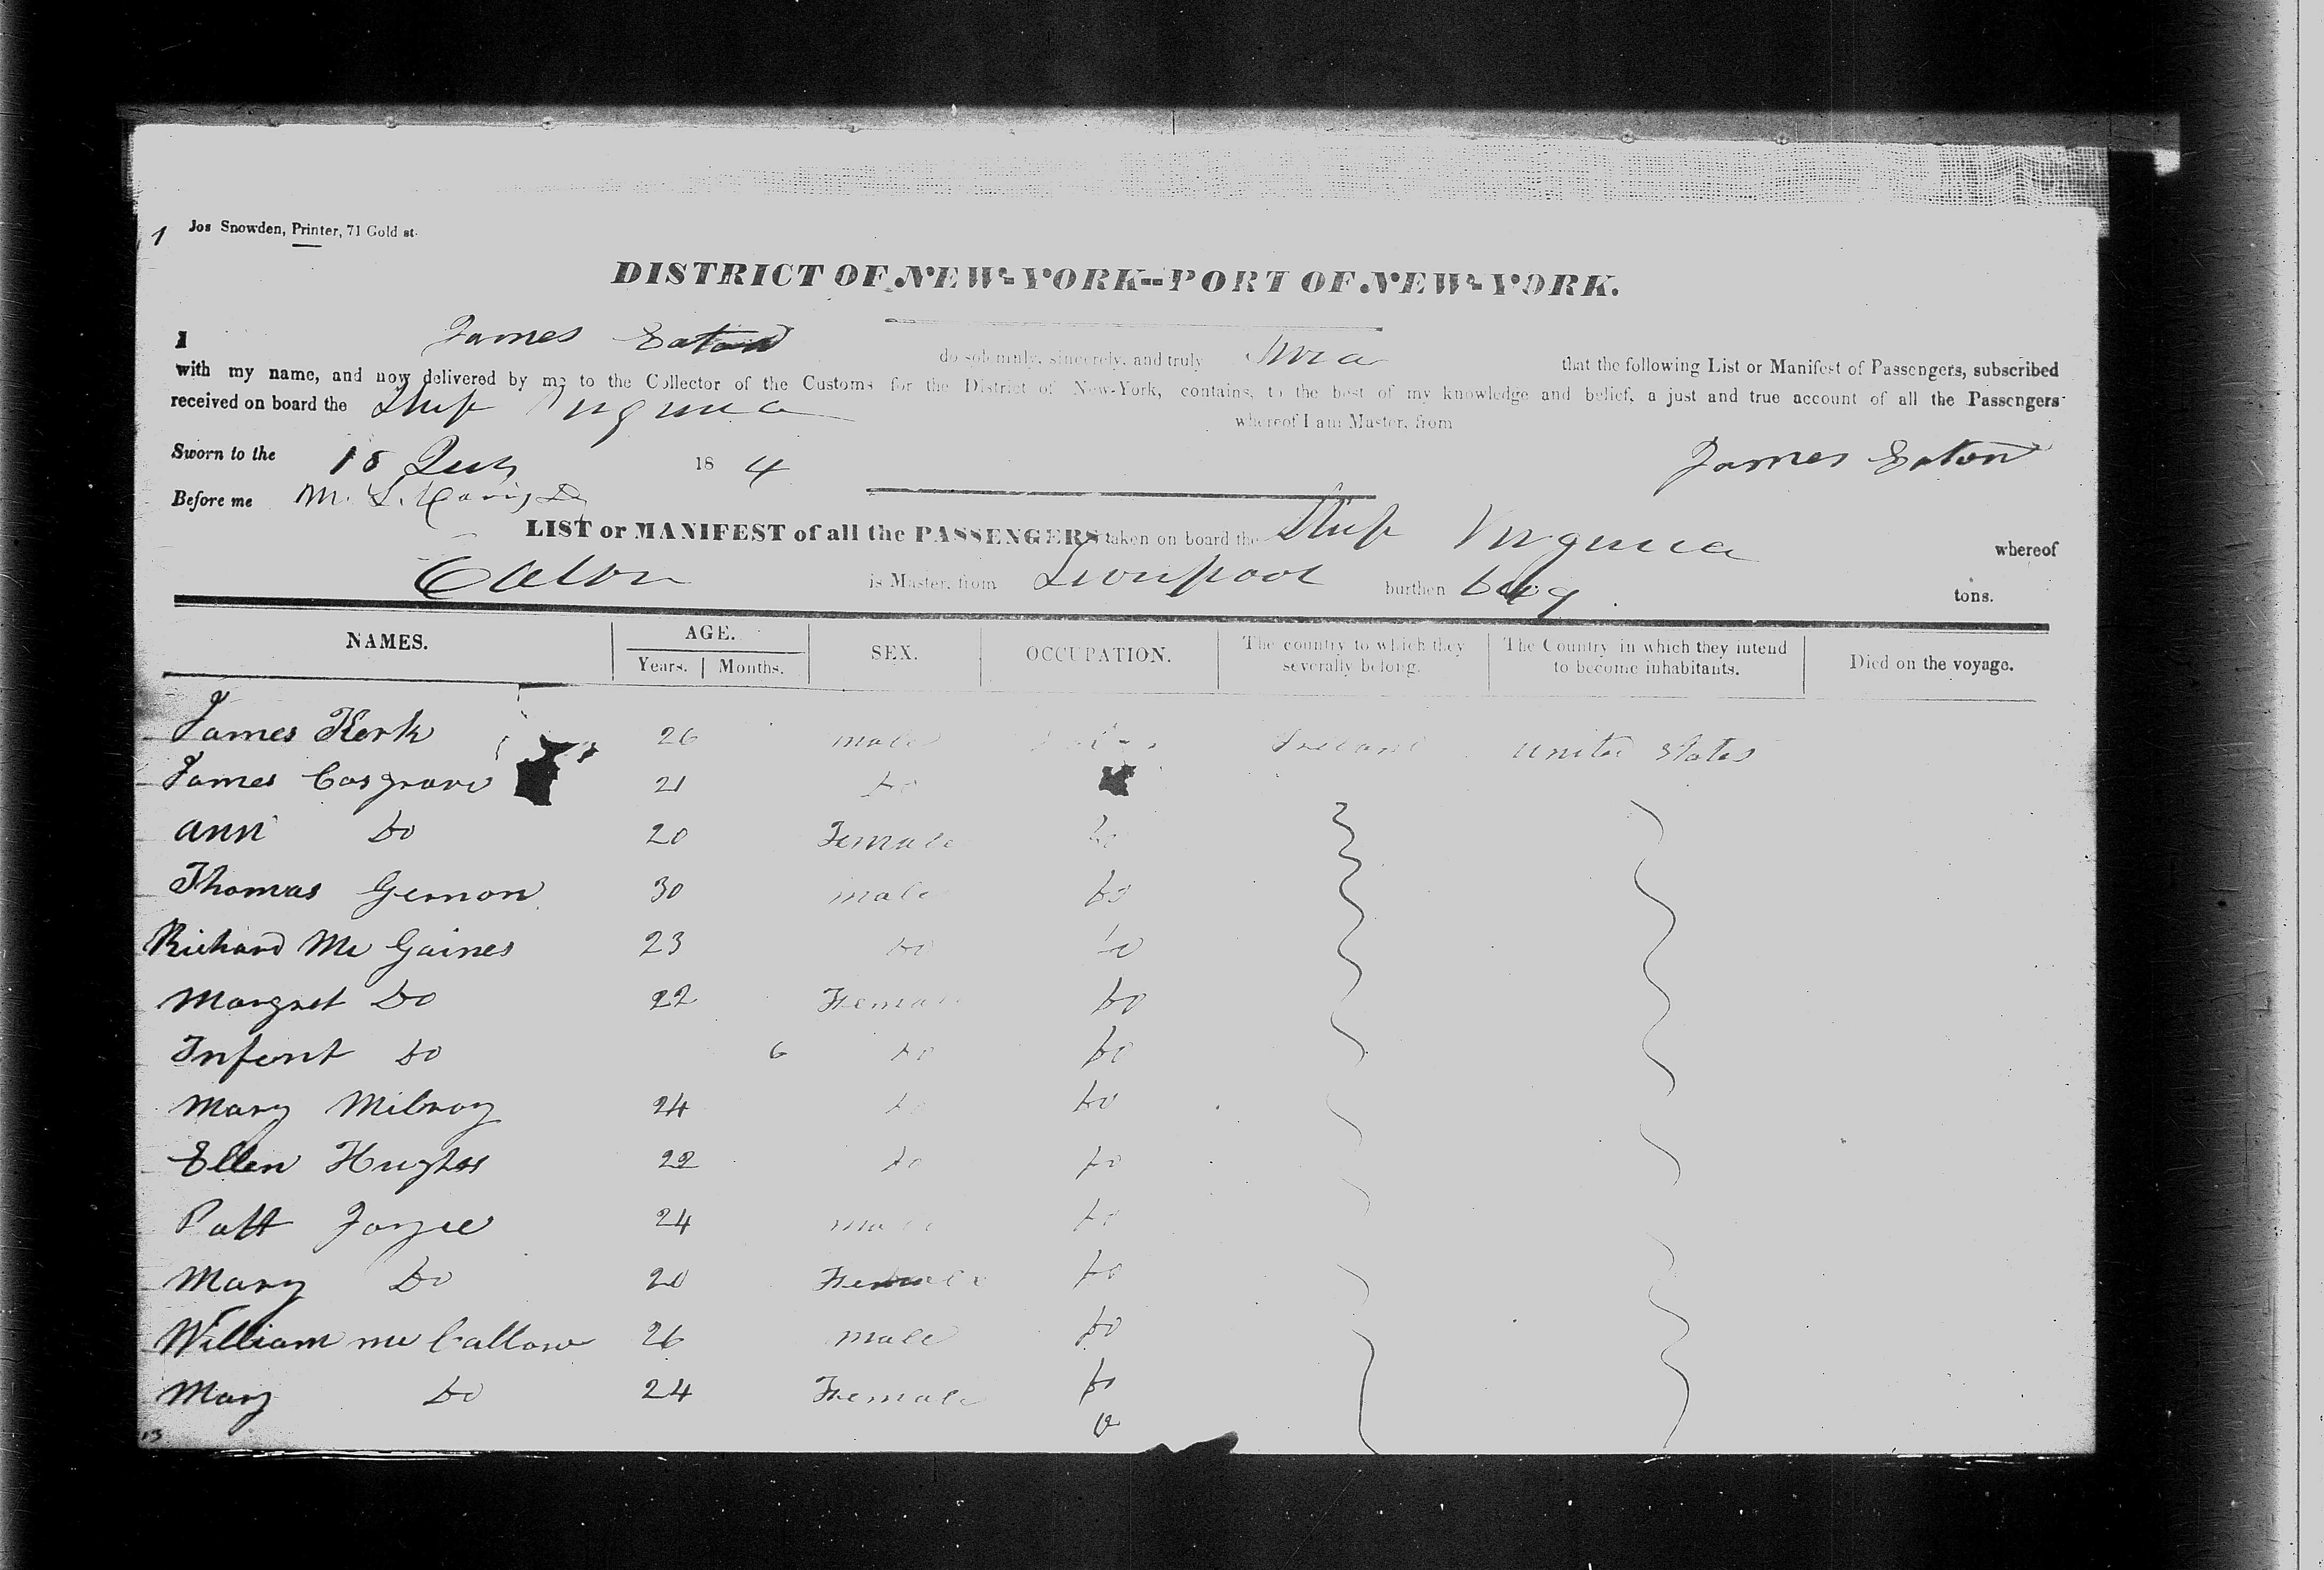 1
Jos Snowden, Printer, 71 Gold st.
DISTRICT OF NEW-YORK--PORT OF NEW-YORK.
I James Eaton do solemnly, sincerely, and truly that the following List or Manifest of Passengers, subscribed
with my name, and now delivered by me to the Collector of the Customs for the District of New-York, contains, to the best of my knowledge and belief, a just and true account of all the Passengers
received on board the Ship Virginia whereof I am Master, from
Sworn to the 18 July 18 4 James Eaton
Before me M.
LIST or MANIFEST of all the PASSENGERS taken on board the Ship Virginia whereof
Eaton is Master, from Liverpool burthen tons.
NAMES. AGE. SEX. OCCUPATION. The country to which they severally belong. The Country in which they intend to become inhabitants. Died on the voyage.
Years. Months.
James Kerk 26 male Ireland United States
James Cosgrave 21 Do
Ann Do 20 Female Do
Thomas Gernon 30 male Do
Richard Mc Gaines 23 Do Do
Margret Do 22 Female Do
Infent Do 6 Do Do
Mary Milroy 24 Do Do
Ellen Hughes 22 Do Do
Patt Joyce 24 male Do
Mary Do 20 Female Do
William mc Callow 26 male Do
Mary Do 24 Female Do
13